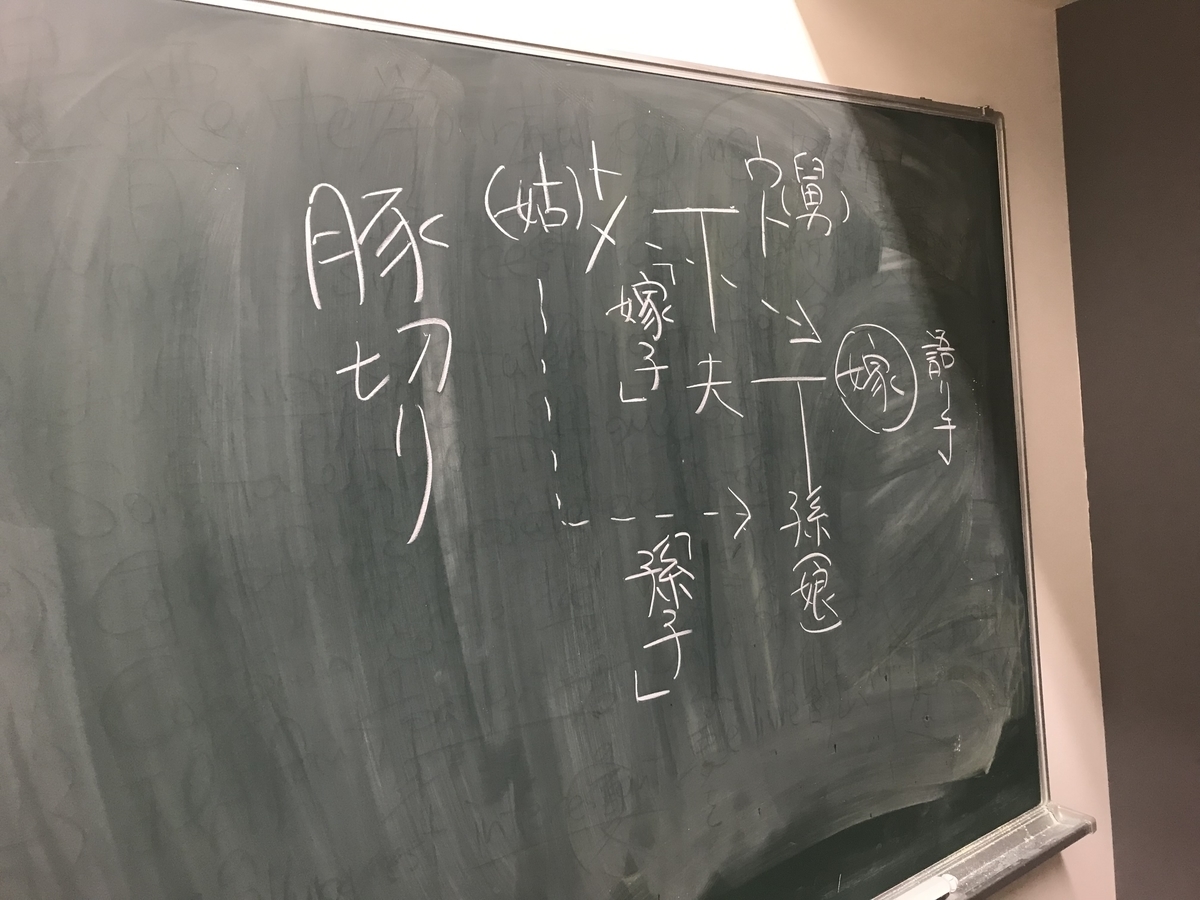 語り手
嫁
ウト(舅)
孫(娘)
夫
「嫁子」
「孫子」
トメ
(姑)
豚切り